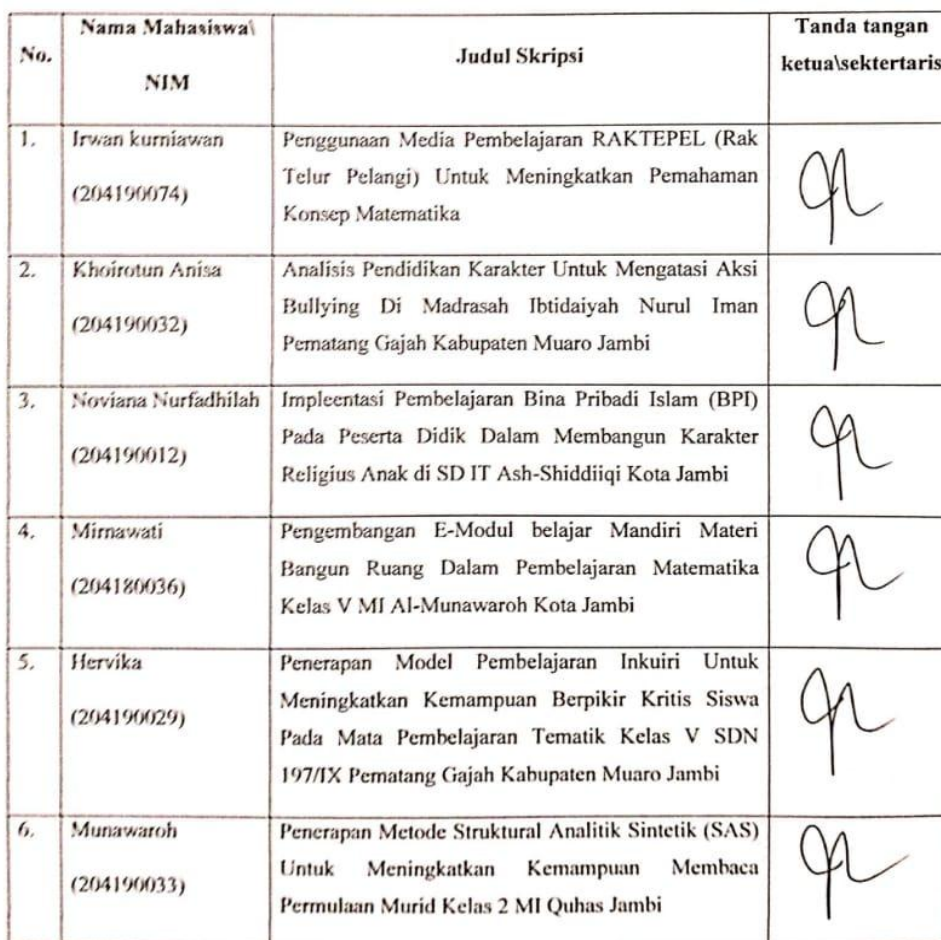 No.
Nama Mahasiswa\
NIM
Judul Skripsi
Tanda tangan
ketua\sektertaris
1.
Irwan kurniawan
(204190074)
Penggunaan Media Pembelajaran RAKTEPEL (Rak
Telur Pelangi) Untuk Meningkatkan Pemahaman
Konsep Matematika
2.
Khoirotun Anisa
(204190032)
Analisis Pendidikan Karakter Untuk Mengatasi Aksi
Bullying Di Madrasah Ibtidaiyah Nurul Iman
Pematang Gajah Kabupaten Muaro Jambi
3.
Noviana Nurfadhilah
(204190012)
Impleentasi Pembelajaran Bina Pribadi Islam (BPI)
Pada Peserta Didik Dalam Membangun Karakter
Religius Anak di SD IT Ash-Shiddiiqi Kota Jambi
4.
Mirnawati
(204180036)
Pengembangan E-Modul belajar Mandiri Materi
Bangun Ruang Dalam Pembelajaran Matematika
Kelas V MI Al-Munawaroh Kota Jambi
5.
Hervika
(204190029)
Penerapan Model Pembelajaran Inkuiri Untuk
Meningkatkan Kemampuan Berpikir Kritis Siswa
Pada Mata Pembelajaran Tematik Kelas V SDN
197/IX Pematang Gajah Kabupaten Muaro Jambi
6.
Munawaroh
(204190033)
Penerapan Metode Struktural Analitik Sintetik (SAS)
Untuk Meningkatkan Kemampuan Membaca
Permulaan Murid Kelas 2 MI Quhas Jambi